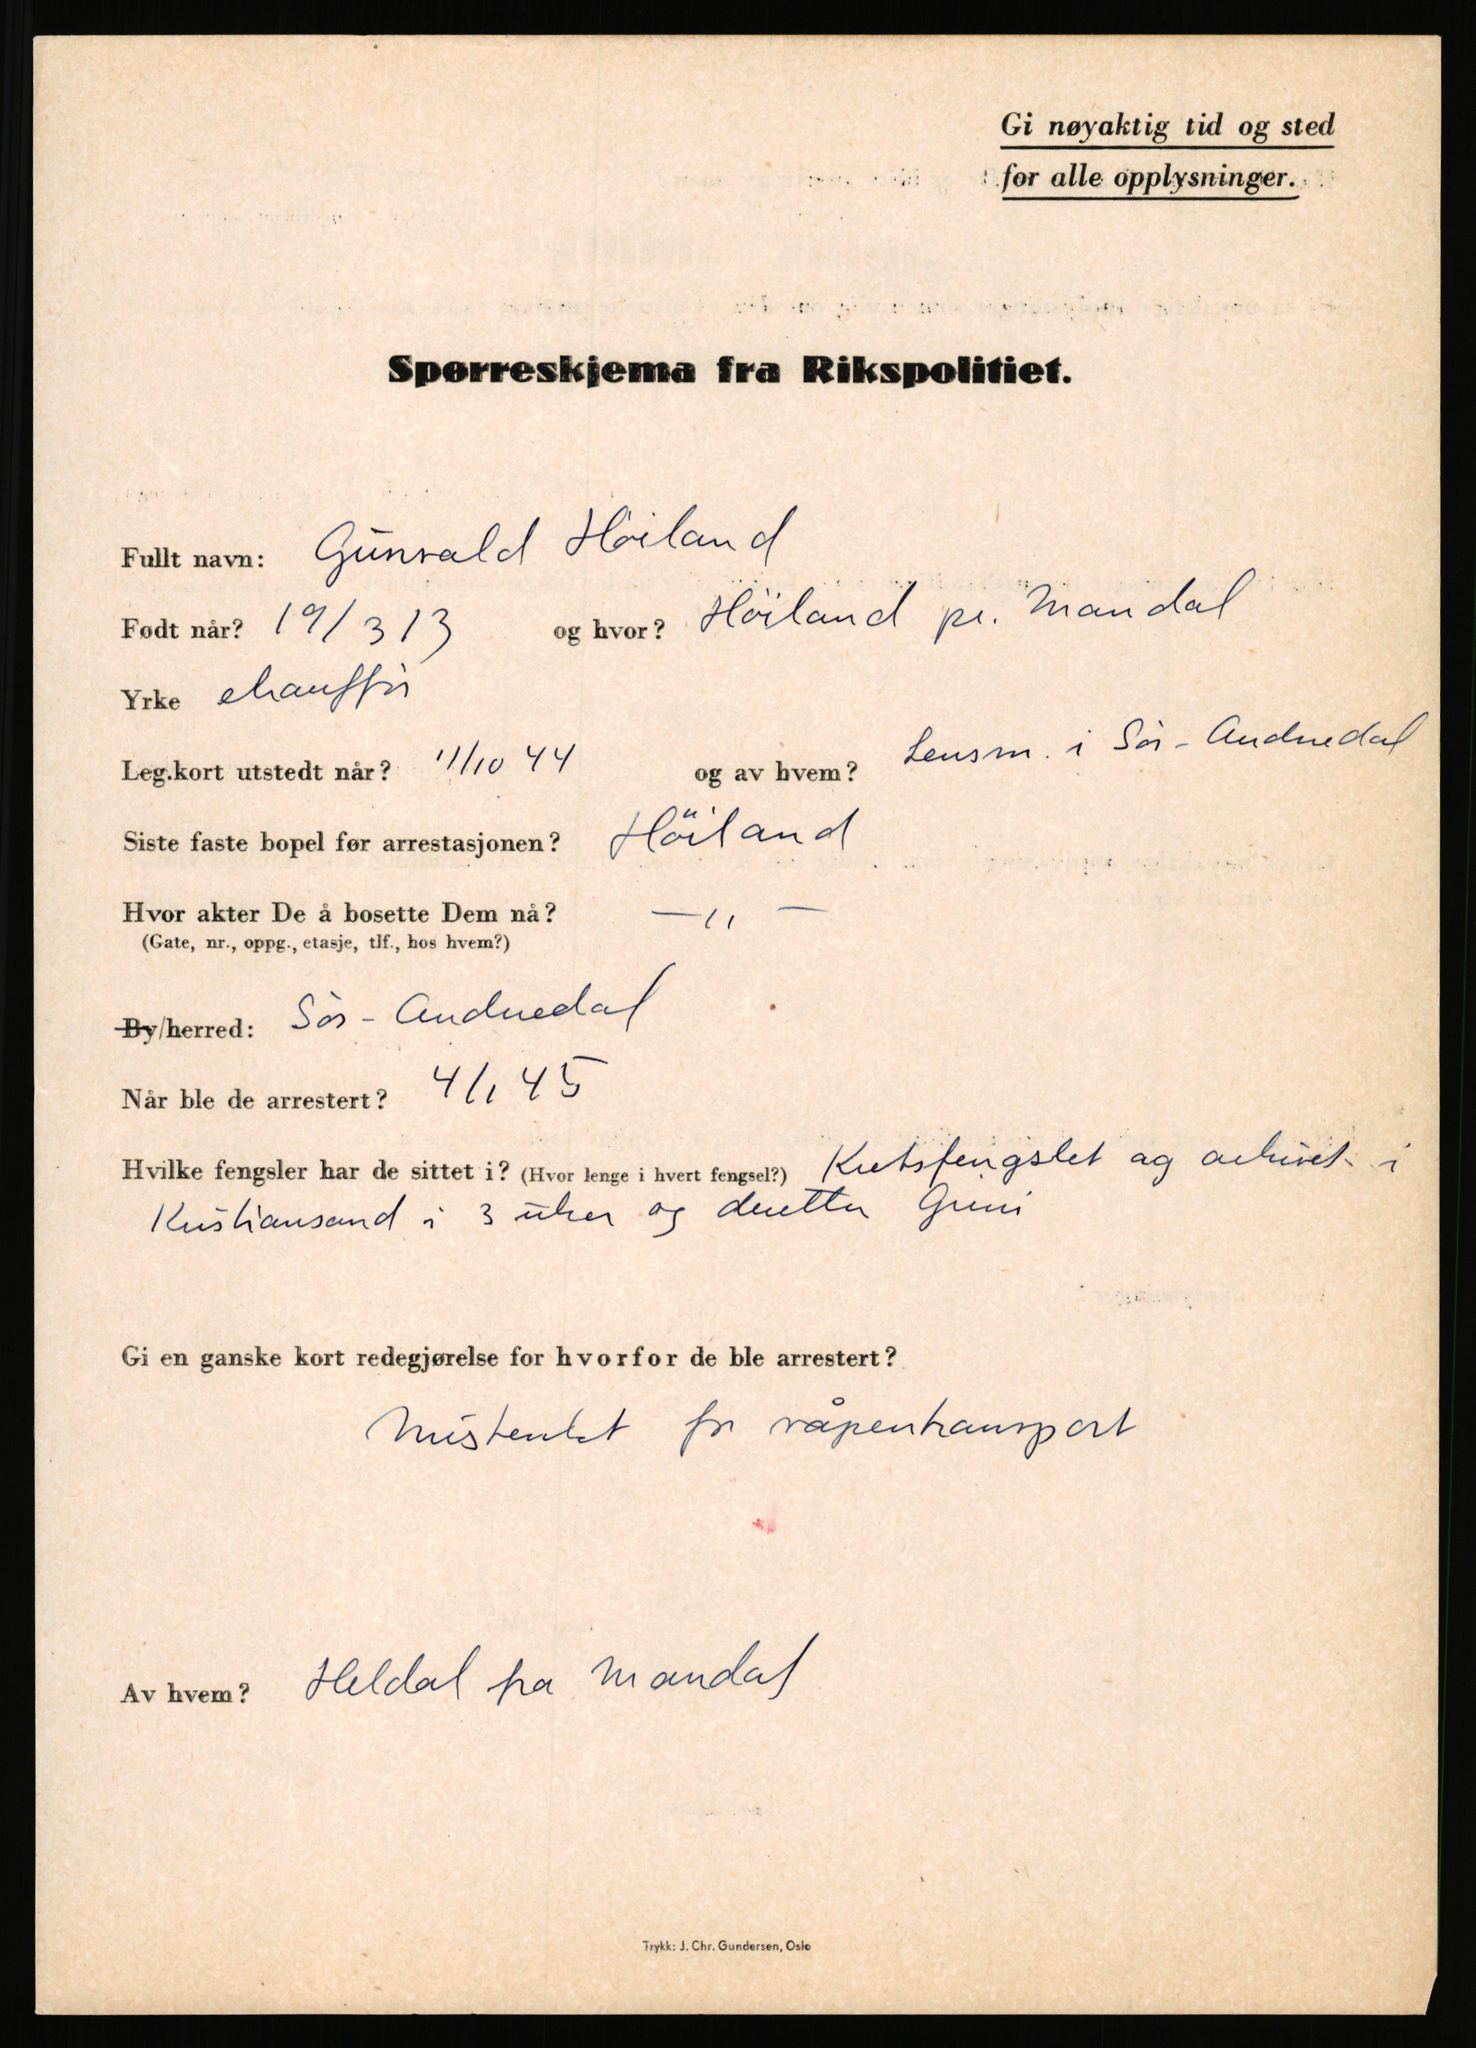 Gi nøyaktig tid og sted
for alle opplysninger.
Spørreskjema fra Rikspolitiet.
Fullt navn: Gunvald Höiland
Født når? 19/3 13 og hvor? Höiland pr. Mandal
Yrke chaufför
Leg.kort utstedt når? 11/10 44 og av hvem? Lensm. i Sör-Audnedal
Siste faste bopel før arrestasjonen? Höiland
Hvor akter De å bosette Dem nå? — " —
(Gate, nr., oppg., etasje, tlf., hos hvem?)
By/herred: Sör-Audnedal
Når ble de arrestert? 4/1 45
Hvilke fengsler har de sittet i? (Hvor lenge i hvert fengsel?) Kretsfengslet og arkivet i
Kristiansand i 3 uker og deretter Grini
Gi en ganske kort redegjørelse for hvorfor de ble arrestert?
Mistenkt for våpentransport
Av hvem? Heldal fra Mandal
Trykk: J. Chr. Gundersen, Oslo